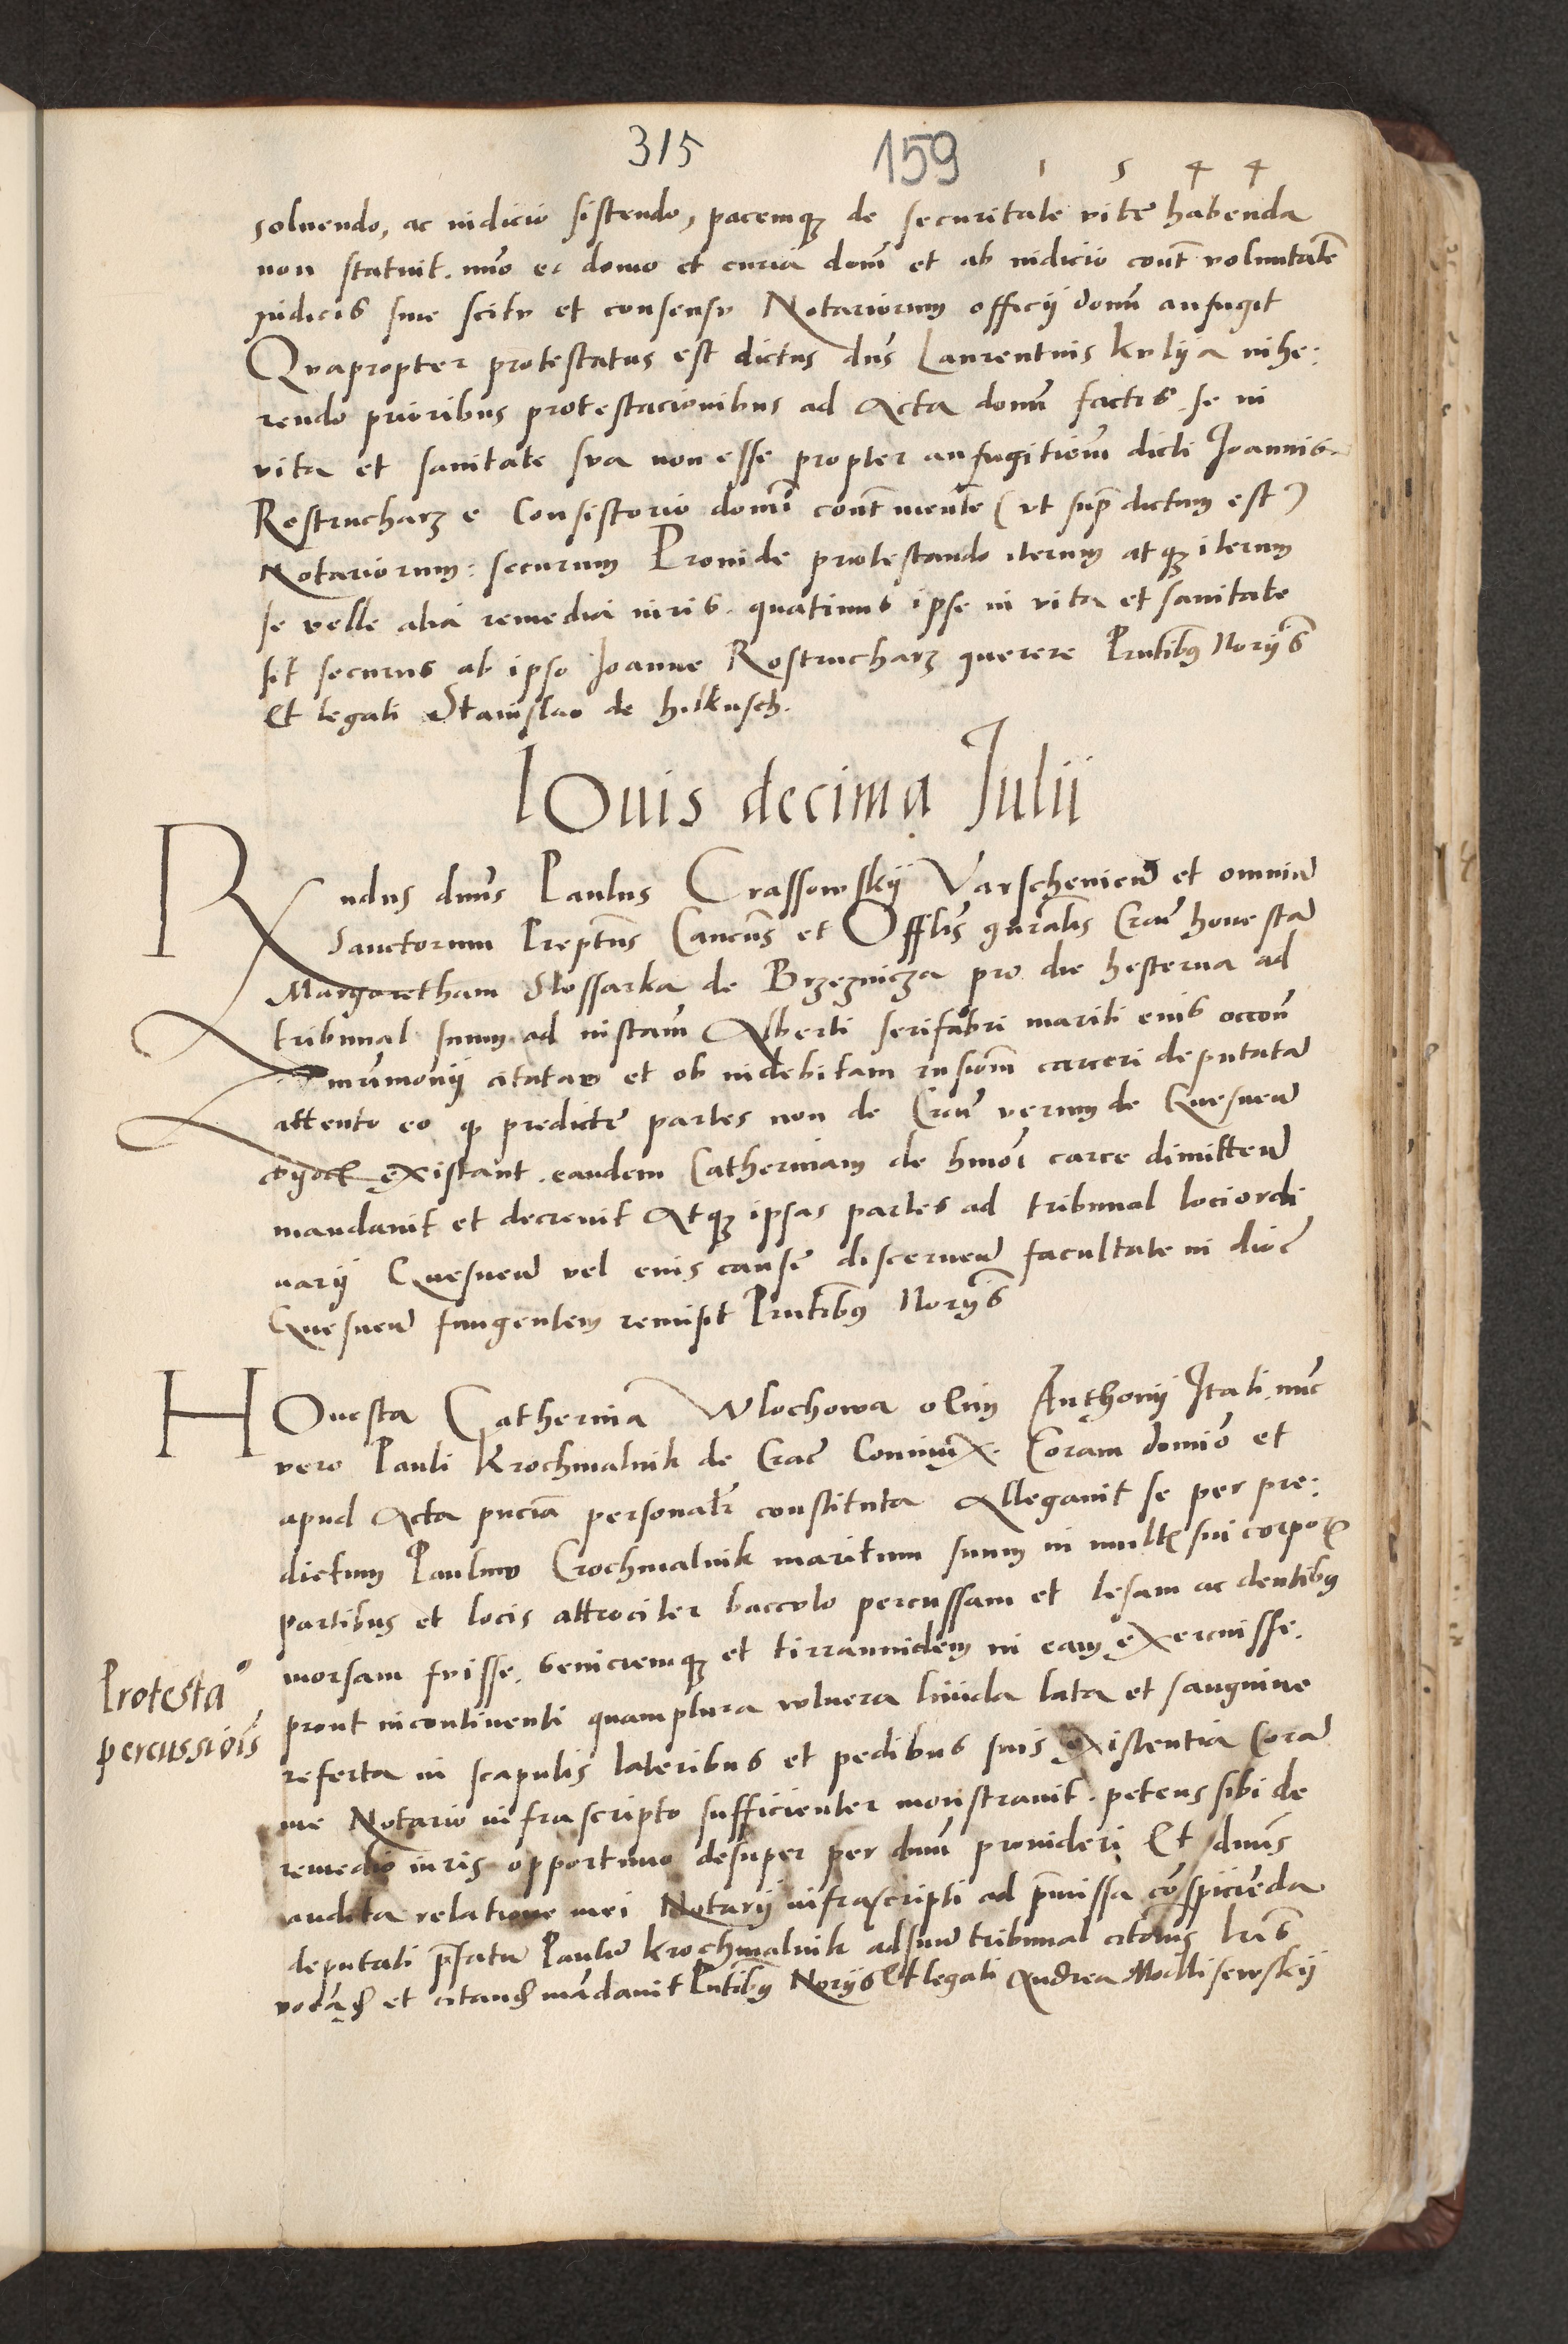 315 159 1 5 4 4
soluendo, ac iudicio sistendo, pacemq; de securitate vite habenda
non statuit. imo ex domo et curia domī et ab iudicio cont voluntatē
iudicis sine scitv et consensv Notariorum officij domī aufugit
Qvapropter protestatus est dictus dns Laurentius kvlija inhe:
rendo prioribus protestacionibus ad Acta domī factis. se in
vita et sanitate sva non esse propter aufugitionem dicti Joannis
Rostrucharz e Consistorio domī (vt supra dictum est)
Notariorum: securum Prouide protestando iterum atq; iterum
se velle alia remedia iuris. quatinus ipse in vita et sanitate
sit securus ab ipso Joanne Rostrucharz querere Pntibus Norijs
Et legali Stanislao de hilkusch.
IOuis decima Julii
Rndus dnus Paulus Crassowskij Varscheuien et omniū
Sanctorum Prepts Cancus et Offlis gnralis Crac honestā
Margaretham Slossarka de Brzeznicza pro die hesterna ad
tribunal suum ad instam Alberti serifabri mariti eius occoñ
mrimonij citatam et ob indebitam carceri deputatā
attento eo q predicte partes non de Crac verum de Gnesnen
dyoc existant. eandem Catherinam de hmoi carce dimitten
mandauit et decreuit Atq; ipsas partes ad tribunal loci ordi
narij Gnesnen vel eius cause discernen facultate in dioc
Gnesnen fungentem remisit Pntibus Norijs
HOnesta Catherina Wlochowa olim Anthonij Itali, nūc
vero Pauli krochmalnik de Crac Coniunx. Coram domīo et
apud Acta pncia personalr constituta Allegauit se per pre:
dictum Paulum Crochmalnik maritum suum in multis sui corporis
partibus et locis attrociter baccvlo percussam et lesam ac dentibus
morsam fvisse. seuiciemq; et tirannidem in eam exercuisse.
prout incontinenti quamplura vvlnera liuida lata et sanguine
referta in scapulis lateribus et pedibus suis existentia Corā
me Notario infrascripto sufficienter monstrauit. petens sibi de
remedio iuris opportuno desuper per dnm prouideri Et dnus
audita relatione mei Notarij infrascripti ad pmissa cōspiciēda
deputati pfatū Paulū krochmalnik ad suū tribunal citōnis lris
vocād et citand mādauit Pntibus Norijs Et legali Andrea Modlisewskij
Protestā
percussiōis